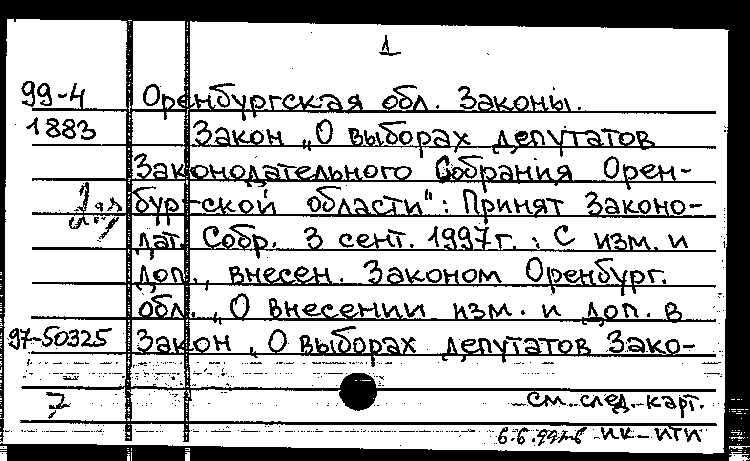 1
99-4 Оренбургская обл. Законы.
1883 Закон „О выборах депутатов
Законодательного Собрания Орен-
бургской области": Принят Законо-
дат. Собр. 3 сент. 1997г. : С изм. и
доп., внесен. Законом Оренбург.
обл. „О внесении изм. и доп. в
97-50325 Закон „О выборах депутатов Зако-
7 см. след. карт.
ик-ити